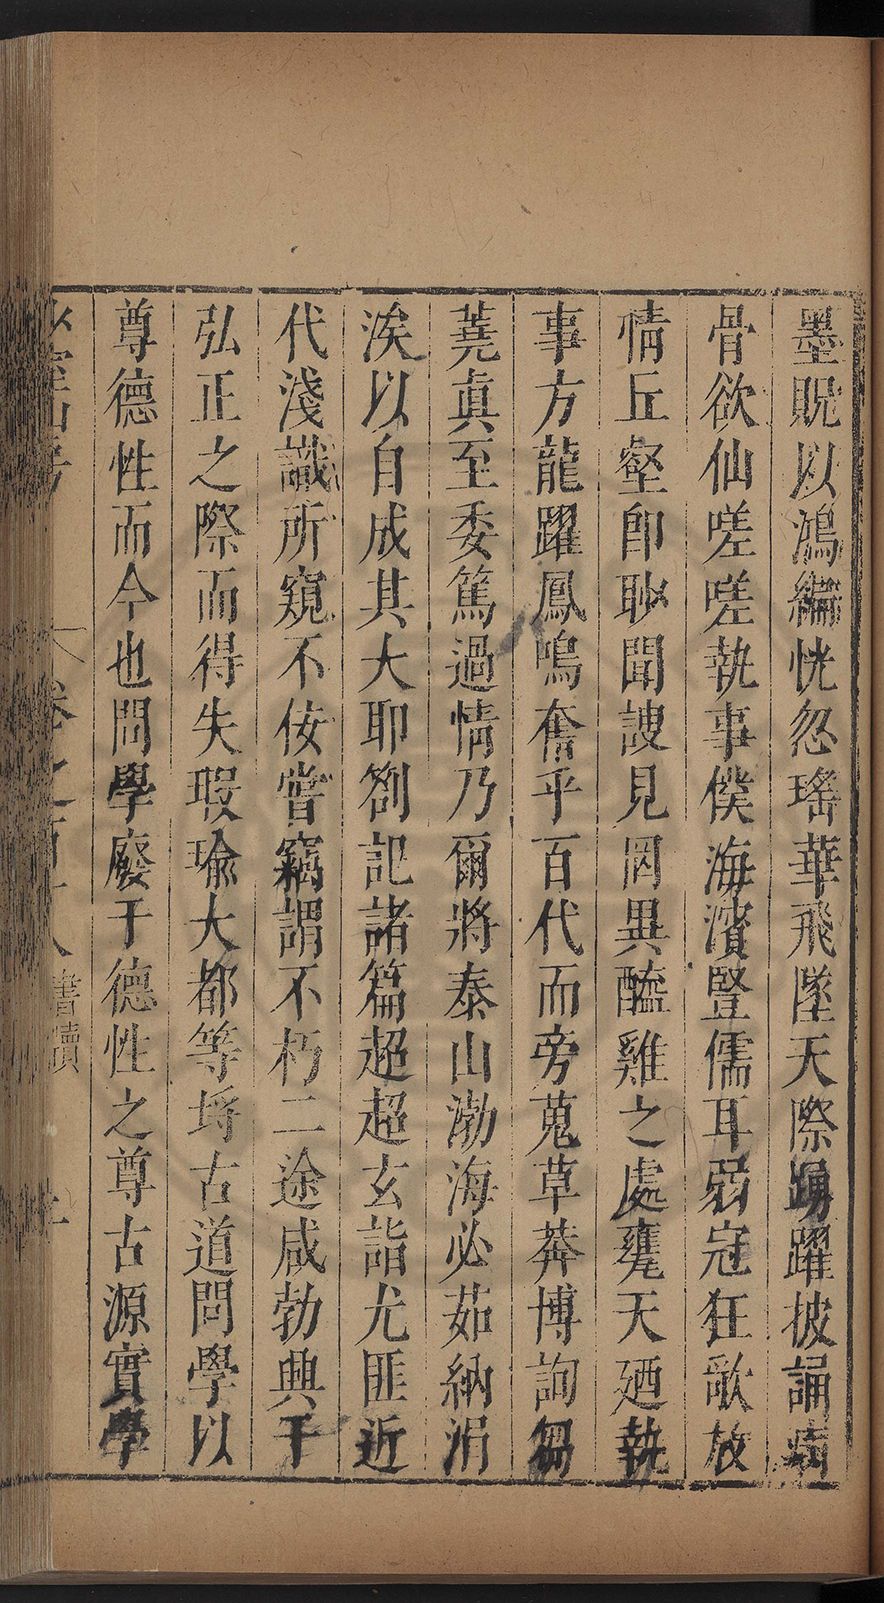 墨貺以鴻編恍忽瑤華飛墜天際踴躍披誦病
骨欲仙嗟嗟執事僕海濱豎儒耳弱冠狂歌放
情丘壑卽耿聞謏見罔異醯雞之處甕天廼執
事方龍躍鳳鳴奮乎百代而旁蒐草莽博詢芻
蕘眞至委篤過情乃爾將泰山渤海必茹納涓
涘以自成其大耶劄記諸篇超超玄詣尤匪近
代淺識所窺不佞嘗竊謂不朽二途咸勃興于
弘正之際而得失瑕瑜大都等埒古道問學以
尊德性而今也問學廢于德性之尊古源實學
卷之百十八 書牘